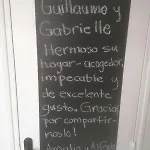 Guillaume y
Gabrielle
Hermoso su
hogar-acogedor,
impecable y
de excelente
gusto. Gracias
por compartir-
noslo!